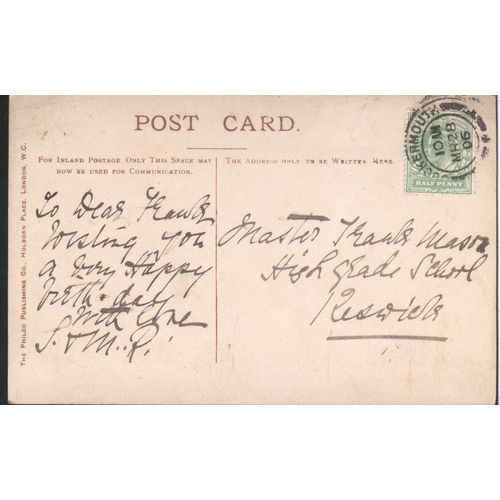 POST CARD.
FOR INLAND POSTAGE ONLY THIS SPACE MAY
NOW BE USED FOR COMMUNICATION.
THE ADDRESS ONLY TO BE WRITTEN HERE.
To Dear Frank
Wishing you
a very Happy
birth-day
With love
S. & M. R.
Master Frank Mason
High grade School
Keswick
THE PHILCO PUBLISHING CO., HOLBORN PLACE, LONDON, W.C.
COCKERMOUTH
10 M
MR 28
06
HALF PENNY